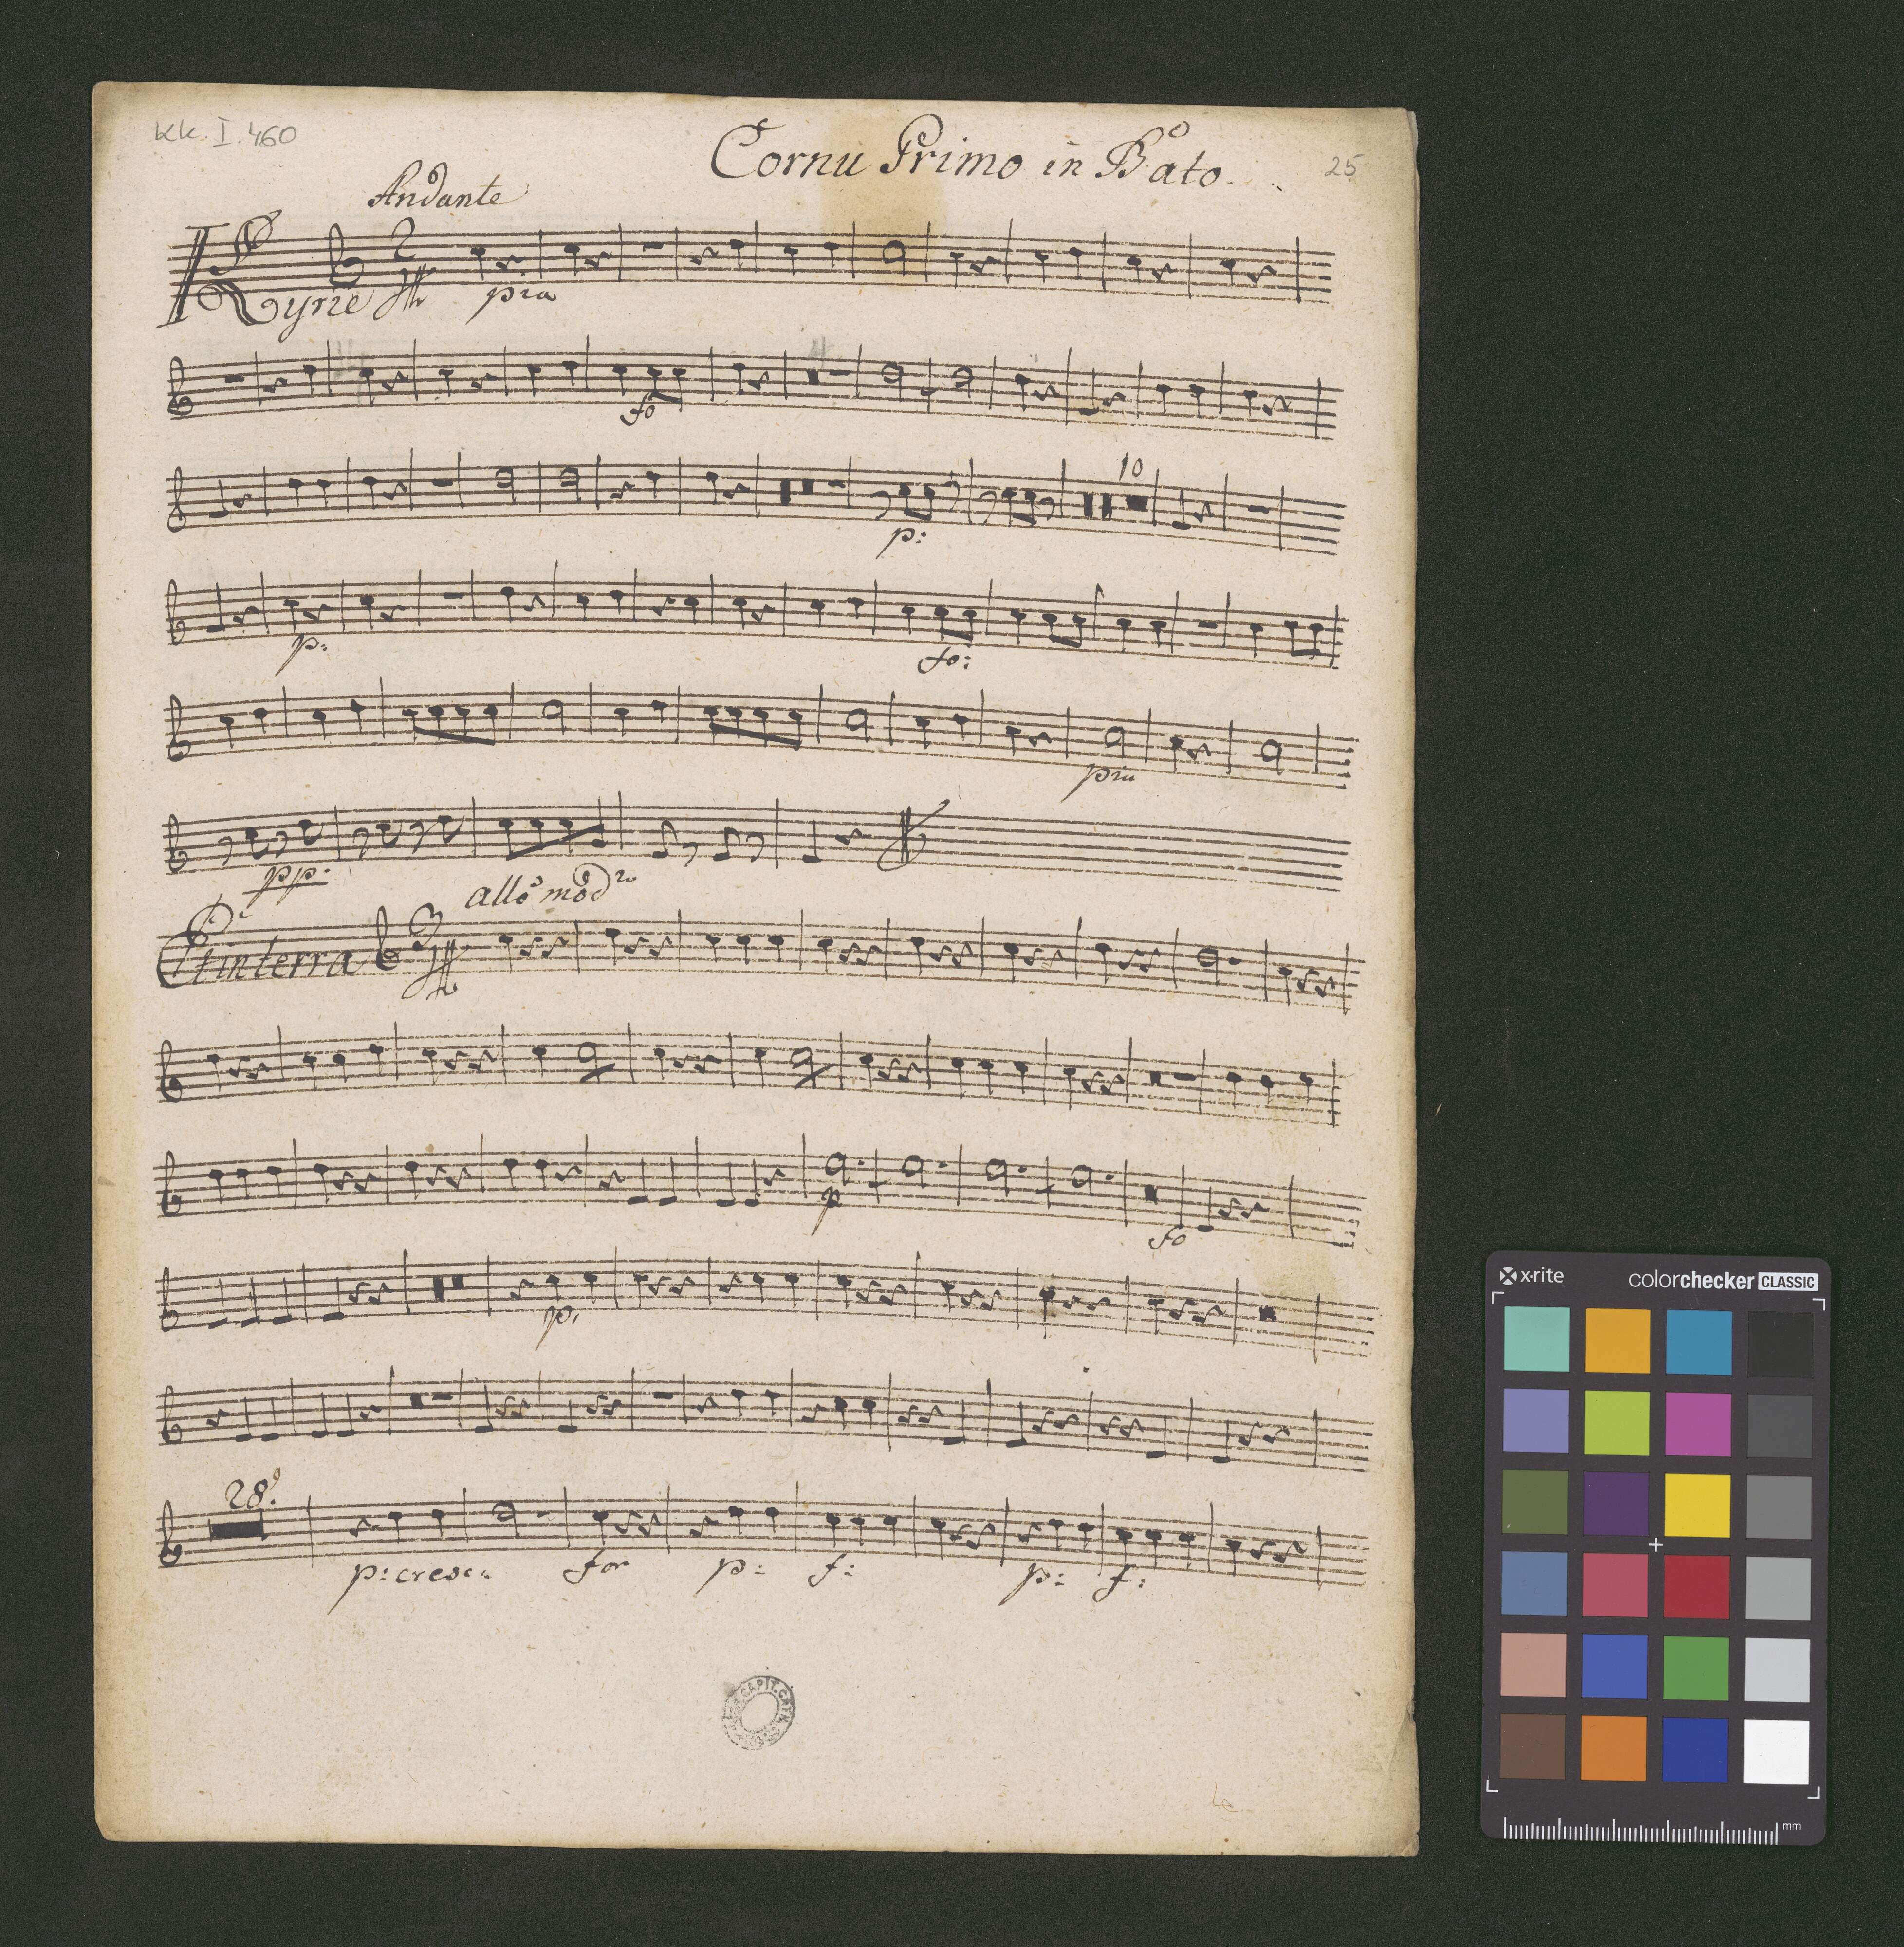 kk. I. 460
Cornu Primo in B ato.
25
Andante
Kyrie
2
4
pia
fo
10
p:
p:
fo:
pia
pp.
allo mod
Et in terra
3
4
p
fo
p.
28.
p: cresc:
for
p:
f:
p:
f:
x-rite
colorchecker CLASSIC
mm